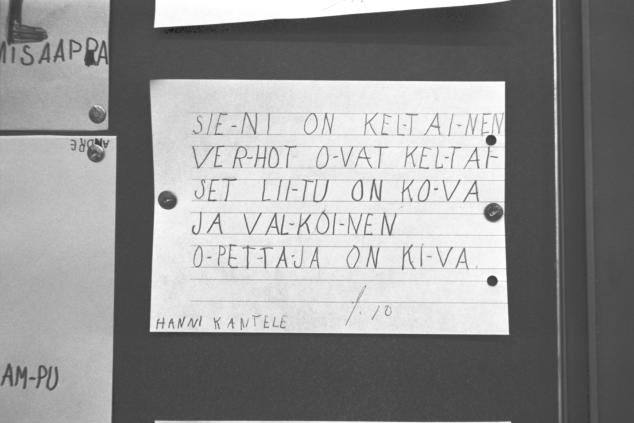 MISAAPRA
ANDRE
AM-PU
SIE-NI ON KEL-TAI-NEN
VER-HOT O-VAT KEL-TAI-
SET LII-TU ON KO-VA
JA VAL-KOI-NEN
O-PET-TA-JA ON KI-VA.
10
HANNI KANTELE